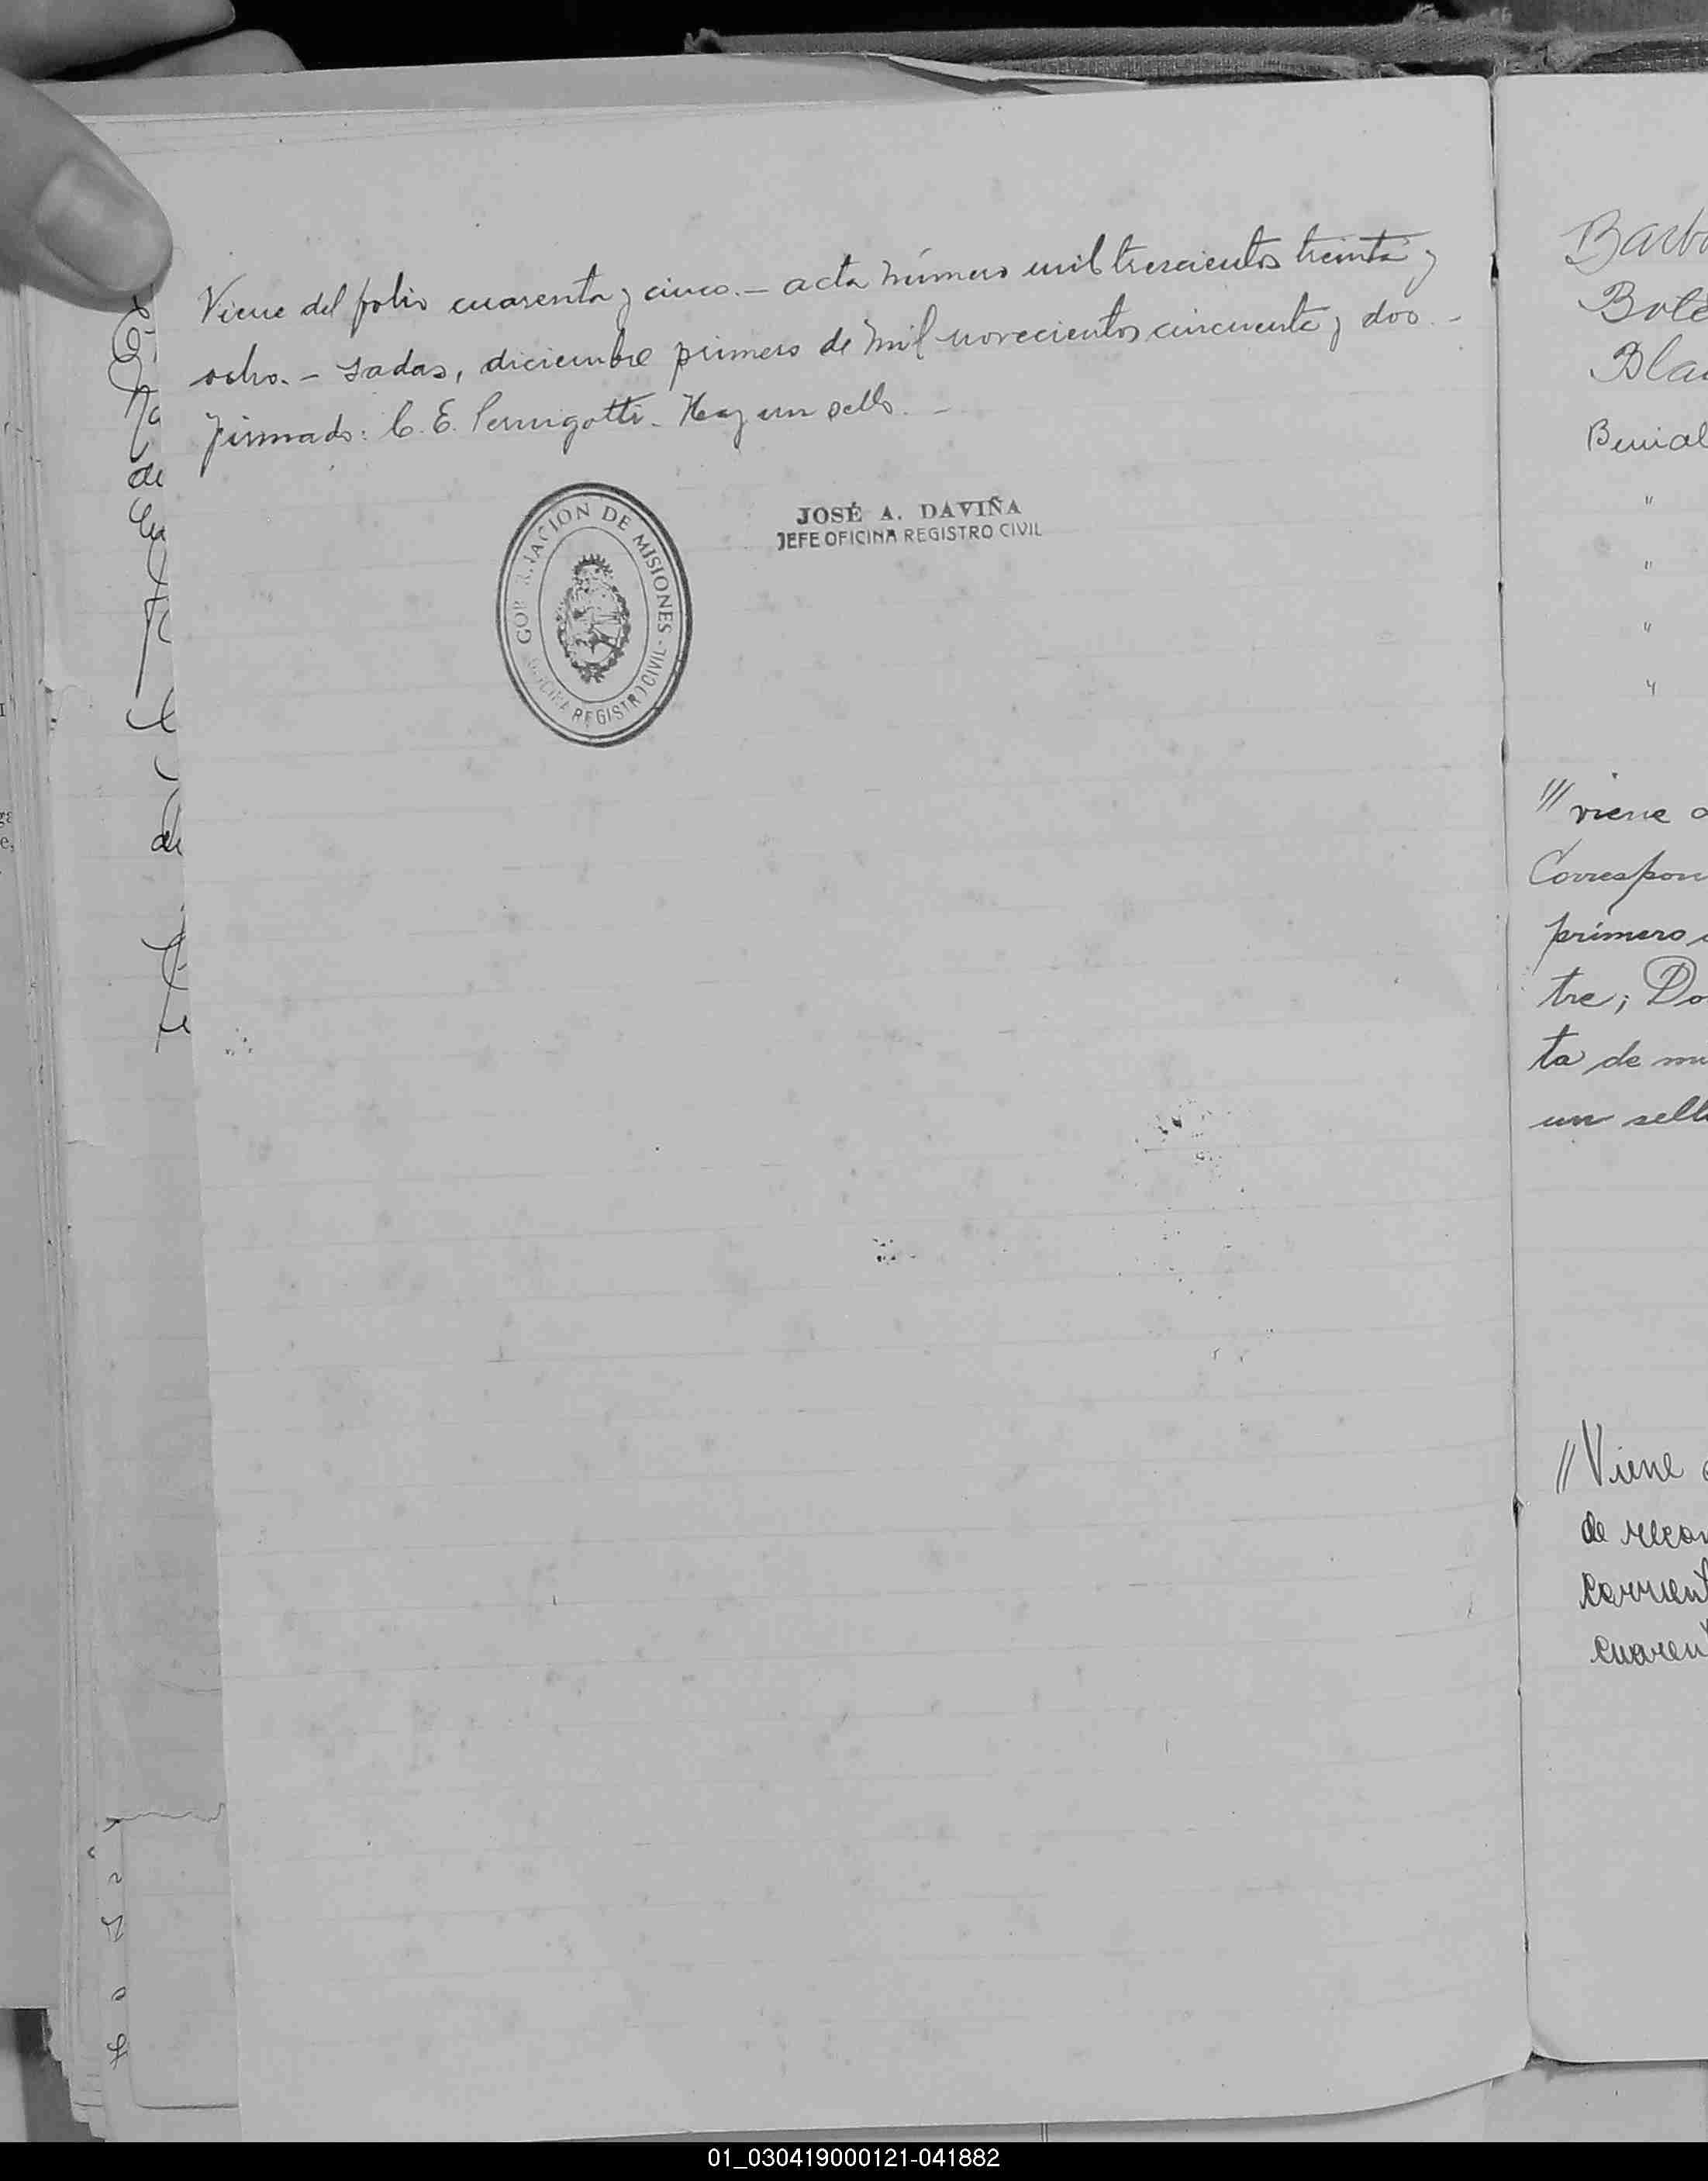 Viene del folio cuarenta y cinco.- acta número mil trescientos treinta y
ocho.- sadas, diciembre primero de mil novecientos cincuenta y dos.-
firmado: C. E. Perugotti. Hay un sello.-
JOSÉ A. DAVIÑA
JEFE OFICINA REGISTRO CIVIL
GOB NACION DE MISIONES
REGISTRO CIVIL
Barb
Bole
Bla
"
"
"
"
/// viene
Correspon
primero
tre; Do
ta de mi
un sell
// Viene
de recon
corrient
cuarent
01_030419000121-041882